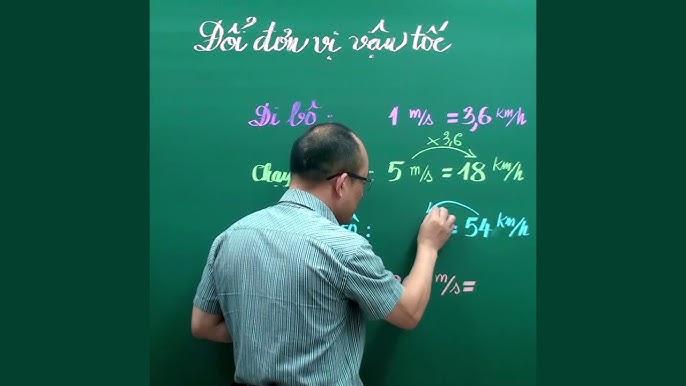 Đổi đơn vị vận tốc
Đi bộ : 1 m/s = 3,6 km/h
×3,6
Chạy = 5 m/s = 18 km/h
: = 54 km/h
m/s =